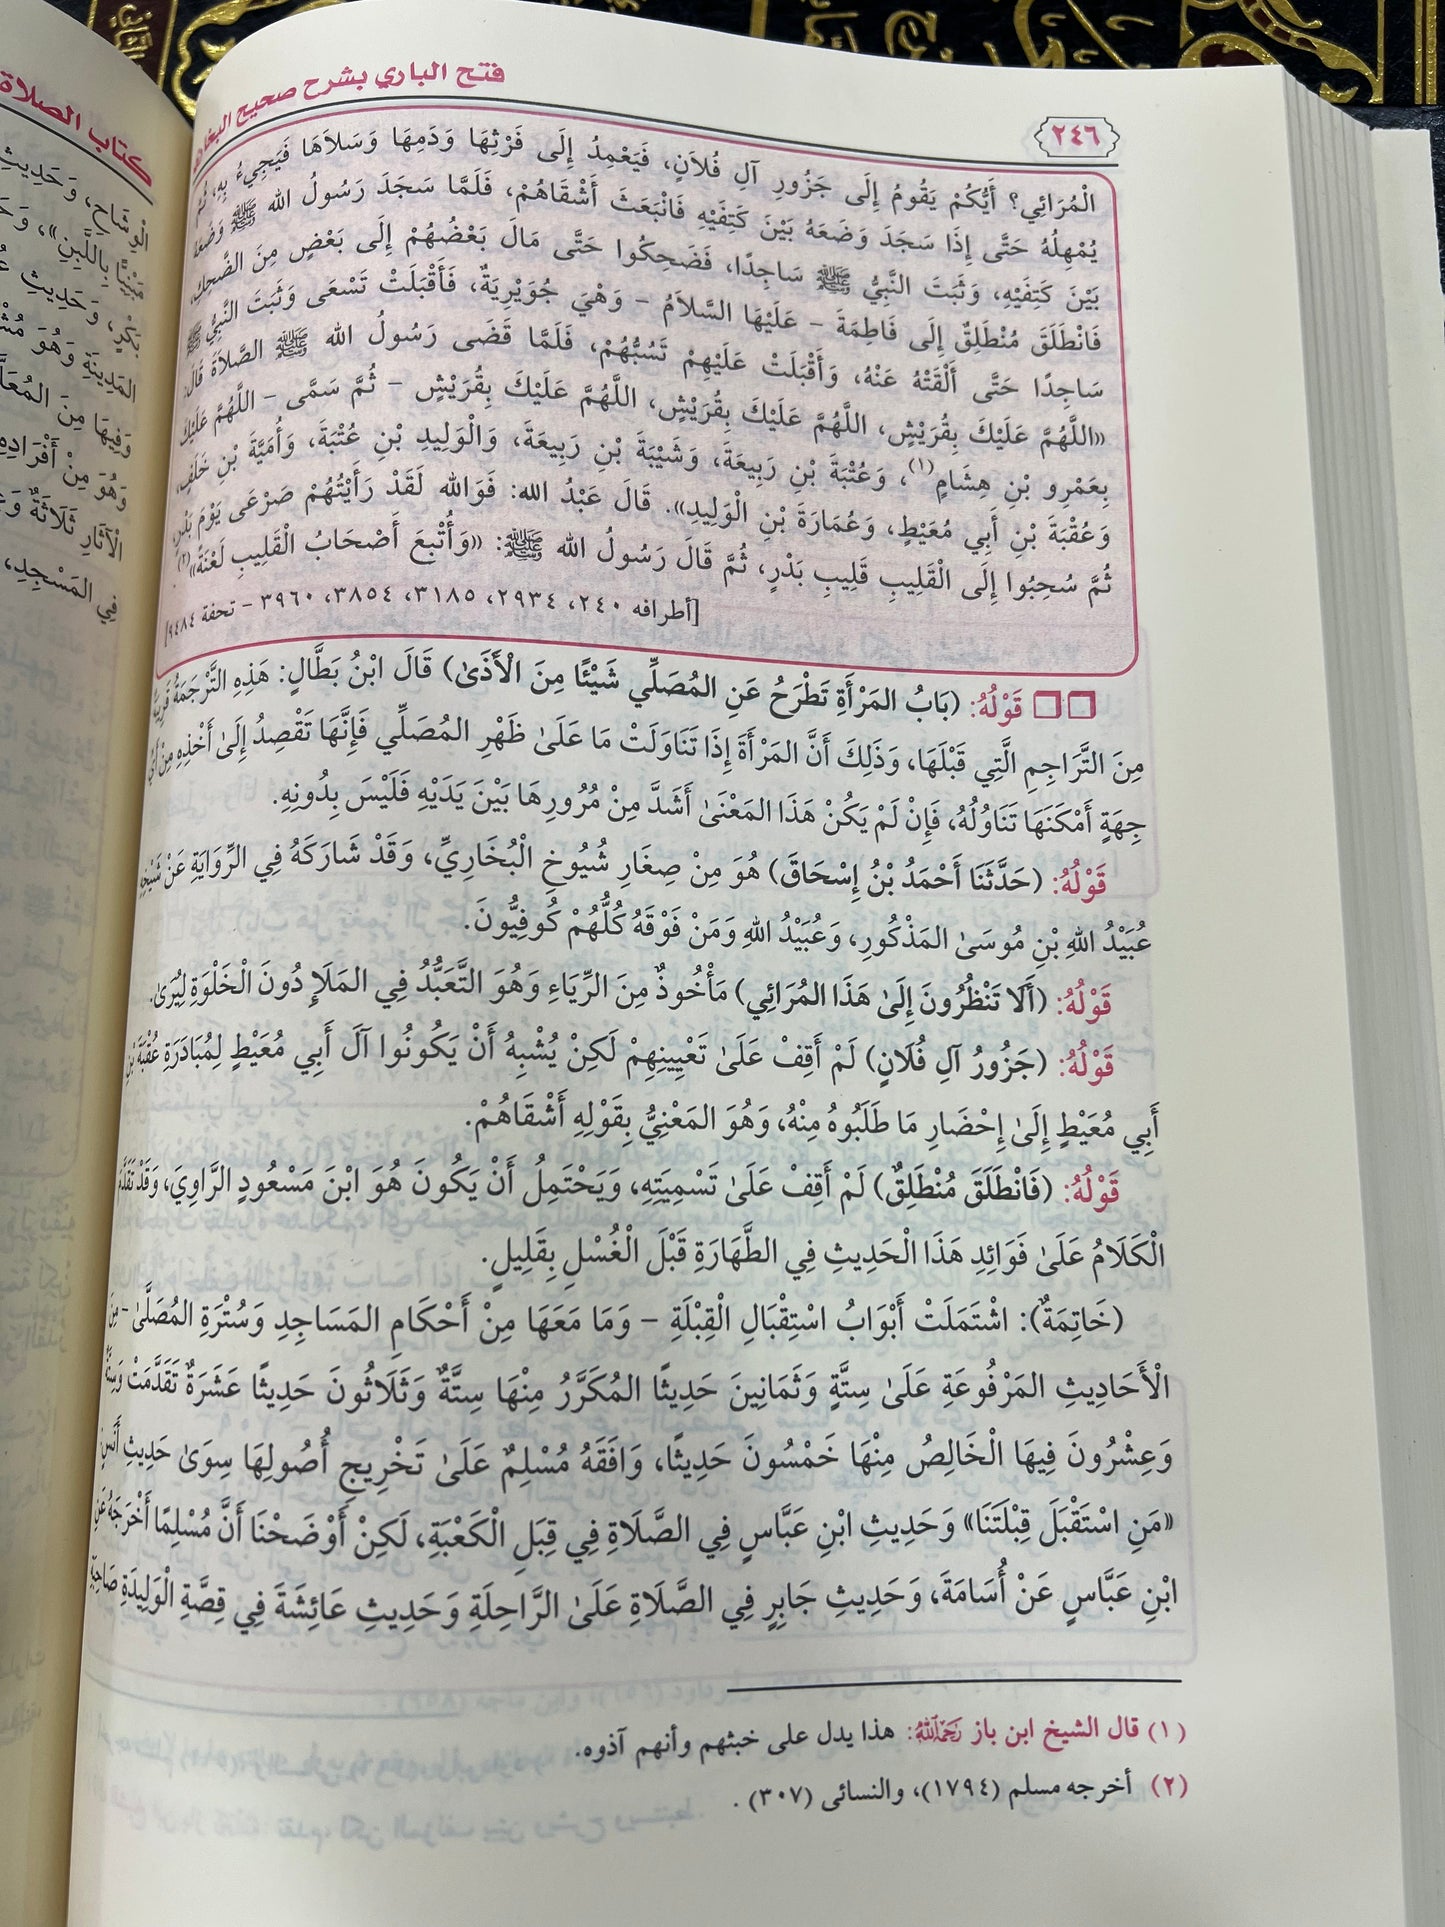 فتح الباري بشرح صحيح
٢٤٦
الْمُرَائِي؟ أَيُّكُمْ يَقُومُ إِلَى جَزُورِ آلِ فُلاَنٍ، فَيَعْمِدُ إِلَى فَرْثِهَا وَدَمِهَا وَسَلاَهَا فَيَجِيءُ بِهِ، ثُمَّ
يُمْهِلُهُ حَتَّى إِذَا سَجَدَ وَضَعَهُ بَيْنَ كَتِفَيْهِ فَانْبَعَثَ أَشْقَاهُمْ، فَلَمَّا سَجَدَ رَسُولُ الله ﷺ وَضَعَهُ
بَيْنَ كَتِفَيْهِ، وَثَبَتَ النَّبِيُّ ﷺ سَاجِدًا، فَضَحِكُوا حَتَّى مَالَ بَعْضُهُمْ إِلَى بَعْضٍ مِنَ الضَّحِكِ،
فَانْطَلَقَ مُنْطَلِقٌ إِلَى فَاطِمَةَ – عَلَيْهَا السَّلاَمُ – وَهْيَ جُوَيْرِيَةٌ، فَأَقْبَلَتْ تَسْعَى وَثَبَتَ النَّبِيُّ ﷺ
سَاجِدًا حَتَّى أَلْقَتْهُ عَنْهُ، وَأَقْبَلَتْ عَلَيْهِمْ تَسُبُّهُمْ، فَلَمَّا قَضَى رَسُولُ الله ﷺ الصَّلاَةَ قَالَ:
«اللَّهُمَّ عَلَيْكَ بِقُرَيْشٍ، اللَّهُمَّ عَلَيْكَ بِقُرَيْشٍ، اللَّهُمَّ عَلَيْكَ بِقُرَيْشٍ – ثُمَّ سَمَّى – اللَّهُمَّ عَلَيْكَ
بِعَمْرِو بْنِ هِشَامٍ(١)، وَعُتْبَةَ بْنِ رَبِيعَةَ، وَشَيْبَةَ بْنِ رَبِيعَةَ، وَالْوَلِيدِ بْنِ عُتْبَةَ، وَأُمَيَّةَ بْنِ خَلَفٍ،
وَعُقْبَةَ بْنِ أَبِي مُعَيْطٍ، وَعُمَارَةَ بْنِ الْوَلِيدِ». قَالَ عَبْدُ الله: فَوَالله لَقَدْ رَأَيْتُهُمْ صَرْعَى يَوْمَ بَدْرٍ،
ثُمَّ سُحِبُوا إِلَى الْقَلِيبِ قَلِيبِ بَدْرٍ، ثُمَّ قَالَ رَسُولُ الله ﷺ: «وَأُتْبِعَ أَصْحَابُ الْقَلِيبِ لَعْنَةً»(٢).
[أطرافه ٢٤٠، ٢٩٣٤، ٣١٨٥، ٣٨٥٤، ٣٩٦٠ – تحفة ٩٤٨٤]
قَوْلُهُ: (بَابُ المَرْأَةِ تَطْرَحُ عَنِ المُصَلِّي شَيْئًا مِنَ الْأَذَىٰ) قَالَ ابْنُ بَطَّالٍ: هَذِهِ التَّرْجَمَةُ قَرِيبَةٌ
مِنَ التَّرَاجِمِ الَّتِي قَبْلَهَا، وَذَلِكَ أَنَّ المَرْأَةَ إِذَا تَنَاوَلَتْ مَا عَلَىٰ ظَهْرِ المُصَلِّي فَإِنَّهَا تَقْصِدُ إِلَىٰ أَخْذِهِ مِنْ أَيِّ
جِهَةٍ أَمْكَنَهَا تَنَاوُلُهُ، فَإِنْ لَمْ يَكُنْ هَذَا المَعْنَىٰ أَشَدَّ مِنْ مُرُورِهَا بَيْنَ يَدَيْهِ فَلَيْسَ بِدُونِهِ.
قَوْلُهُ: (حَدَّثَنَا أَحْمَدُ بْنُ إِسْحَاقَ) هُوَ مِنْ صِغَارِ شُيُوخِ الْبُخَارِيِّ، وَقَدْ شَارَكَهُ فِي الرِّوَايَةِ عَنْ شَيْخِهِ
عُبَيْدُ اللهِ بْنِ مُوسَىٰ المَذْكُورِ، وَعُبَيْدُ اللهِ وَمَنْ فَوْقَهُ كُلُّهُمْ كُوفِيُّونَ.
قَوْلُهُ: (أَلَا تَنْظُرُونَ إِلَىٰ هَذَا المُرَائِي) مَأْخُوذٌ مِنَ الرِّيَاءِ وَهُوَ التَّعَبُّدُ فِي المَلَإِ دُونَ الْخَلْوَةِ لِيُرَىٰ.
قَوْلُهُ: (جَزُورُ آلِ فُلَانٍ) لَمْ أَقِفْ عَلَىٰ تَعْيِينِهِمْ لَكِنْ يُشْبِهُ أَنْ يَكُونُوا آلَ أَبِي مُعَيْطٍ لِمُبَادَرَةِ عُقْبَةَ بْنِ
أَبِي مُعَيْطٍ إِلَىٰ إِحْضَارِ مَا طَلَبُوهُ مِنْهُ، وَهُوَ المَعْنِيُّ بِقَوْلِهِ أَشْقَاهُمْ.
قَوْلُهُ: (فَانْطَلَقَ مُنْطَلِقٌ) لَمْ أَقِفْ عَلَىٰ تَسْمِيَتِهِ، وَيَحْتَمِلُ أَنْ يَكُونَ هُوَ ابْنَ مَسْعُودٍ الرَّاوِيَ، وَقَدْ تَقَدَّمَ
الْكَلَامُ عَلَىٰ فَوَائِدِ هَذَا الْحَدِيثِ فِي الطَّهَارَةِ قَبْلَ الْغُسْلِ بِقَلِيلٍ.
(خَاتِمَةٌ): اشْتَمَلَتْ أَبْوَابُ اسْتِقْبَالِ الْقِبْلَةِ – وَمَا مَعَهَا مِنْ أَحْكَامِ المَسَاجِدِ وَسُتْرَةِ المُصَلَّىٰ – مِنَ
الْأَحَادِيثِ المَرْفُوعَةِ عَلَىٰ سِتَّةٍ وَثَمَانِينَ حَدِيثًا المُكَرَّرُ مِنْهَا سِتَّةٌ وَثَلَاثُونَ حَدِيثًا عَشَرَةٌ تَقَدَّمَتْ وَسِتَّةٌ
وَعِشْرُونَ فِيهَا الْخَالِصُ مِنْهَا خَمْسُونَ حَدِيثًا، وَافَقَهُ مُسْلِمٌ عَلَىٰ تَخْرِيجِ أُصُولِهَا سِوَىٰ حَدِيثِ أَنَسٍ
«مَنِ اسْتَقْبَلَ قِبْلَتَنَا» وَحَدِيثِ ابْنِ عَبَّاسٍ فِي الصَّلَاةِ فِي قِبَلِ الْكَعْبَةِ، لَكِنْ أَوْضَحْنَا أَنَّ مُسْلِمًا أَخْرَجَهُ عَنِ
ابْنِ عَبَّاسٍ عَنْ أُسَامَةَ، وَحَدِيثِ جَابِرٍ فِي الصَّلَاةِ عَلَىٰ الرَّاحِلَةِ وَحَدِيثِ عَائِشَةَ فِي قِصَّةِ الْوَلِيدَةِ صَاحِبَةِ
(١) قال الشيخ ابن باز رَحِمَهُ اللَّهُ: هذا يدل على خبثهم وأنهم آذوه.
(٢) أخرجه مسلم (١٧٩٤)، والنسائى (٣٠٧).
كتاب الصلاة
وَحَدِيثِ
بِاللَّبِنِ»،
وَحَدِيثِ
المَدِينَةِ وَهُوَ
وَفِيهَا مِنَ
وَهُوَ مِنْ أَفْرَادِهِ
الْآثَارِ ثَلَاثَةٌ
فِي المَسْجِدِ،